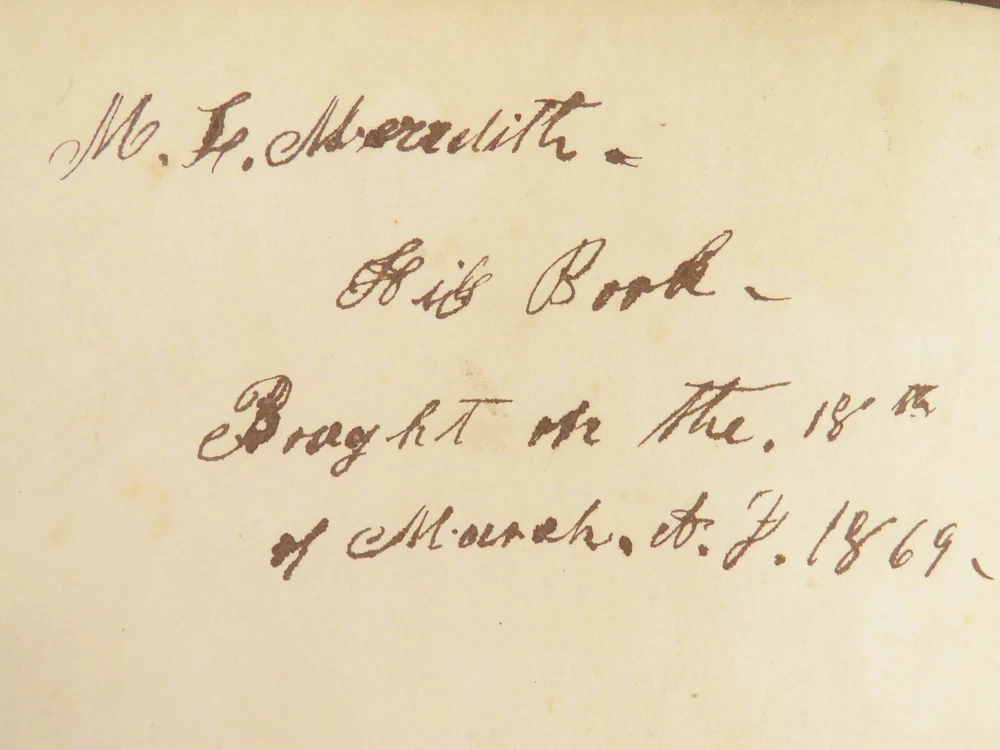 M. L. Meredith.
His Book.
Bought on the. 18th
of March. A. D. 1869.